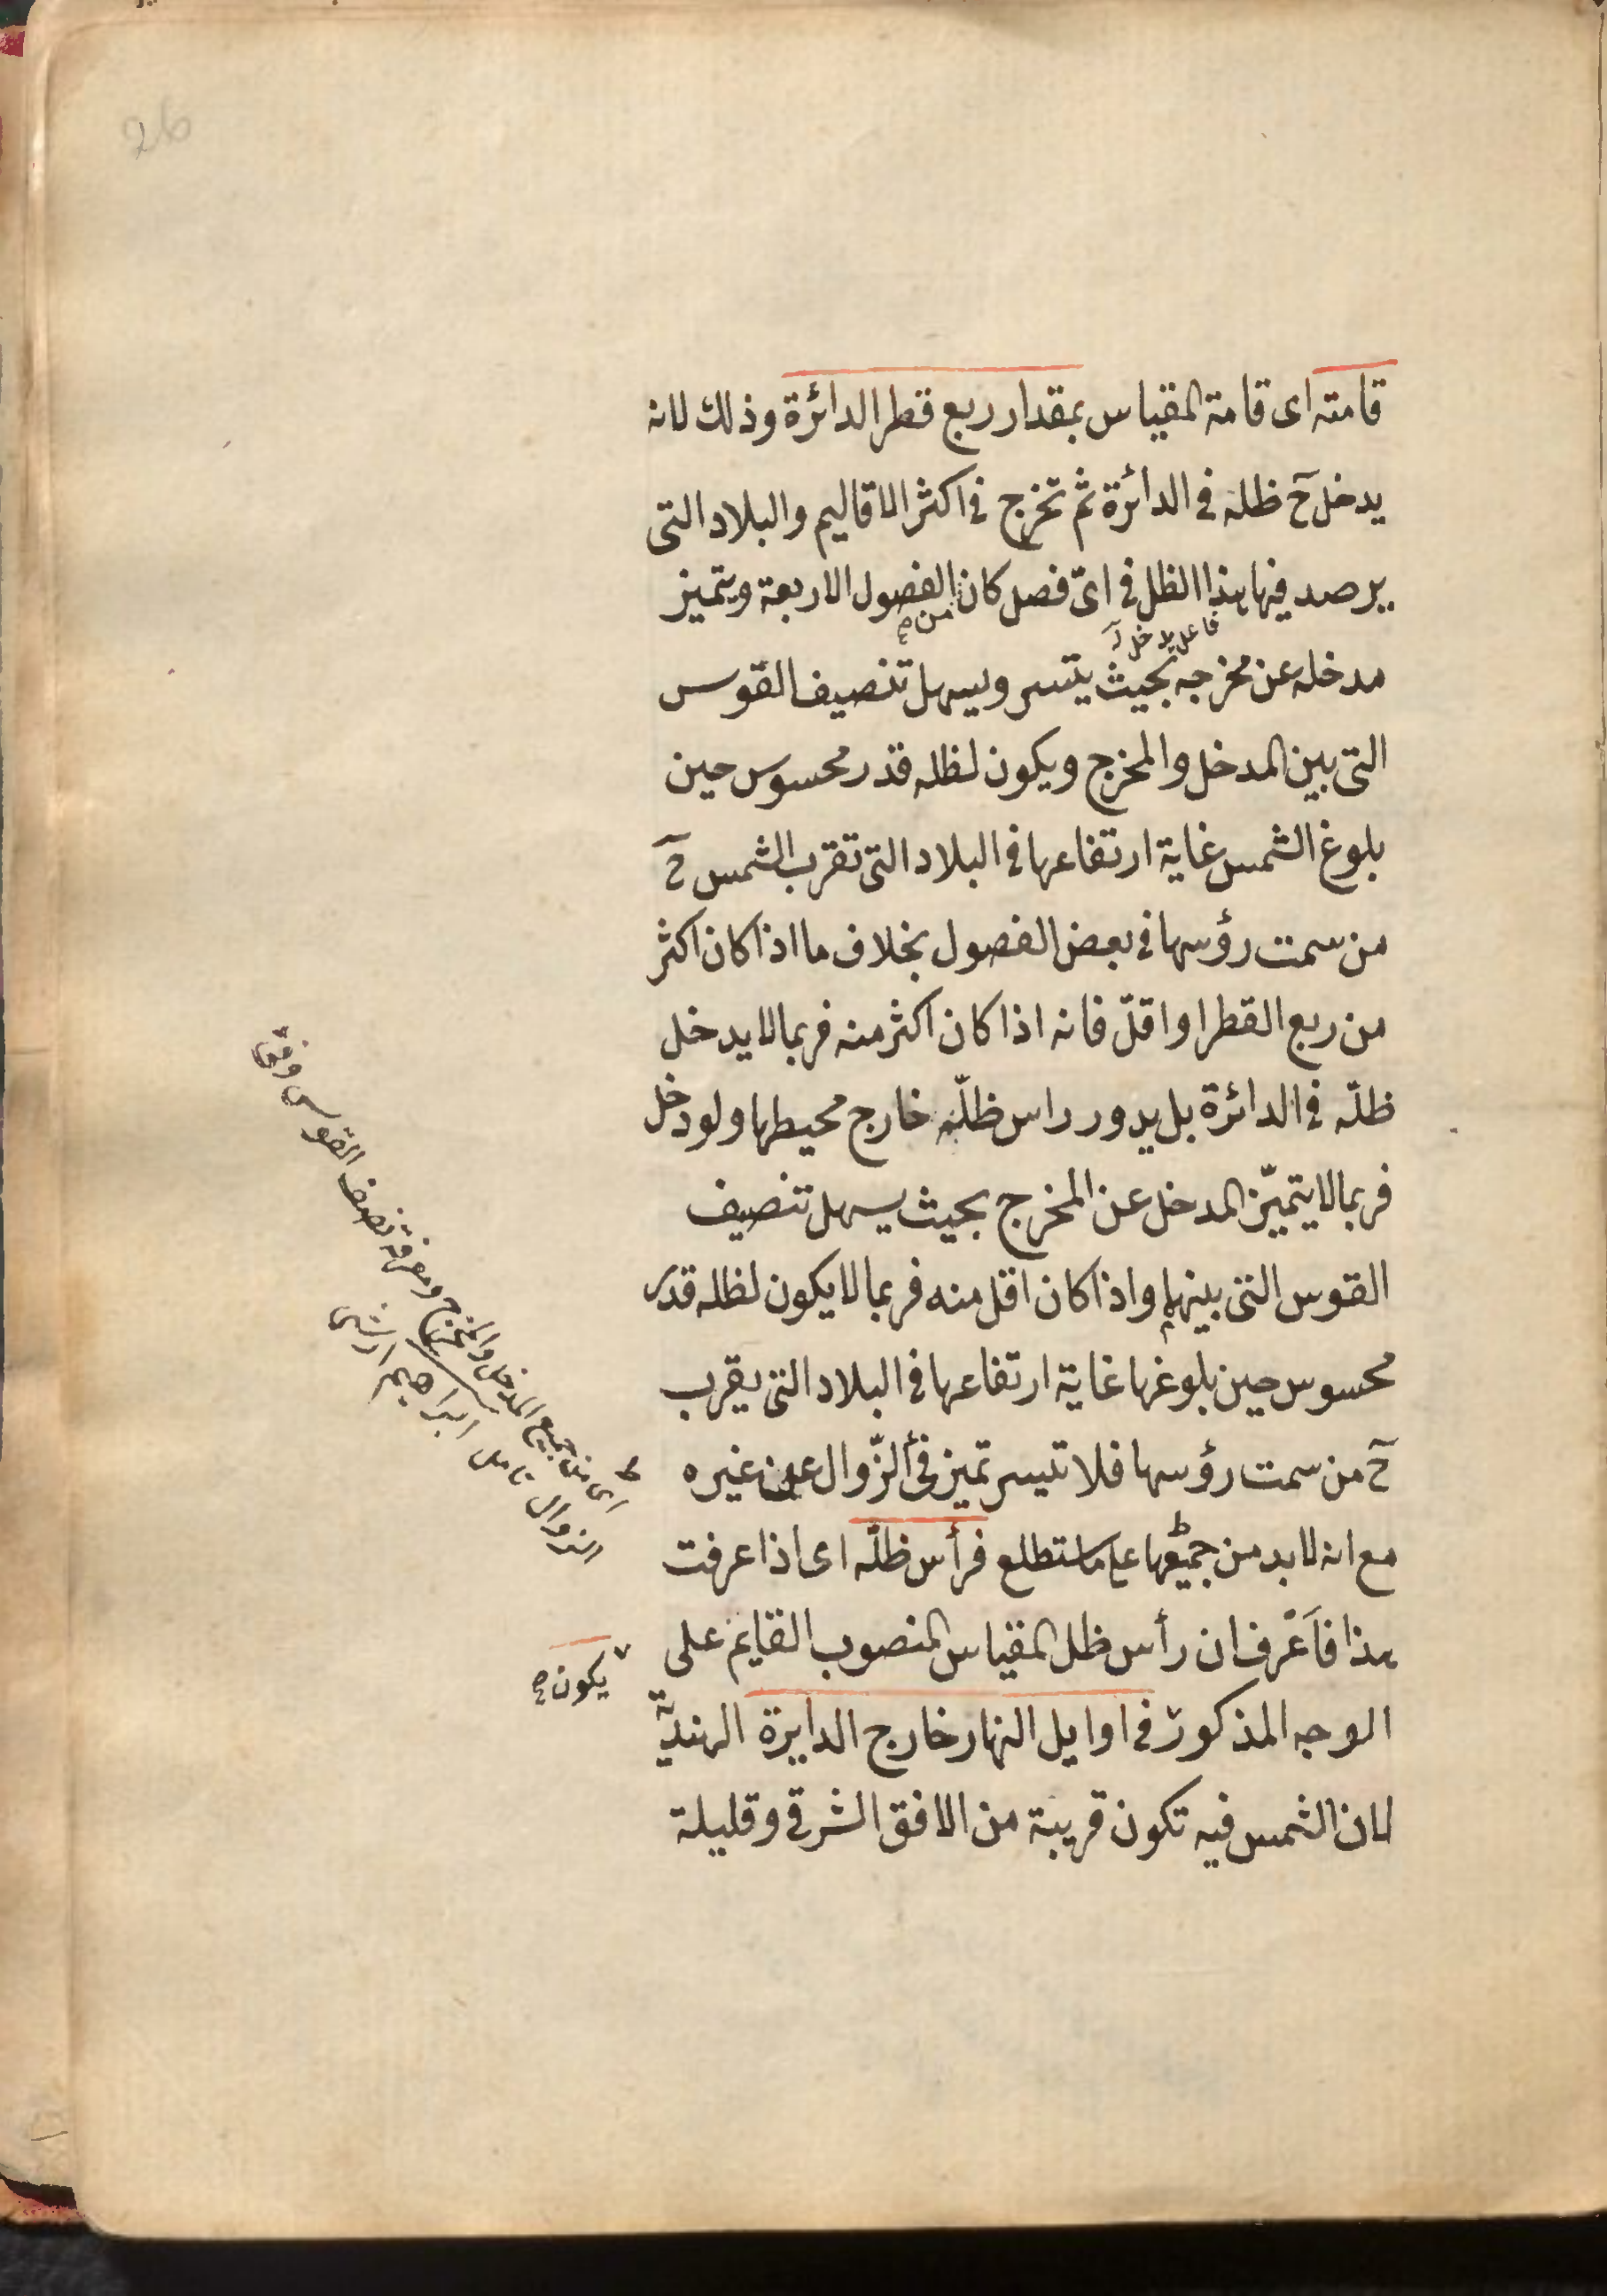 26
قامته اى قامة المقياس بمقدار ربع قطر الدائرة وذلك لانه
يدخل ح ظله فى الدائرة ثم تخرج فى اكثر الاقاليم والبلاد التى
يرصد فيها هذا الظل فى اىّ فصل كان الفصول الاربعة ويتميز
من صح
فاعل يدخل
مدخله عن مخرجه بحيث يتيسر ويسهل تنصيف القوس
التى بين المدخل والمخرج ويكون لظله قدر محسوس حين
بلوغ الشمس غاية ارتفاعها فى البلاد التى تقرب الشمس ح
من سمت رؤسها فى بعض الفصول بخلاف ما اذا كان اكثر
من ربع القطر او اقلّ فانه اذا كان اكثر منه فربما لا يدخل
ظلّه فى الدائرة بل يدور راس ظلّه خارج محيطها ولو دخل
فربما لا يتميّز المدخل عن المخرج بحيث يسهل تنصيف
القوس التى بينهما واذا كان اقل منه فربما لا يكون لظله قدر
محسوس حين بلوغها غاية ارتفاعها فى البلاد التى يقرب
ح من سمت رؤسها فلا تتيسر تميز فئ الزّوال عن غيره
مع انه لا بد من جميعها على ما ستطلع فرأس ظلّه اى اذا عرفت
هذا فاَعْرف ان رأس ظل المقياس المنصوب القايم على
الوجه المذكور فى اوايل النهار خارج الدايرة الهنديّة
لان الشمس فيه تكون قريبة من الافق الشرقى وقليلة
اى من جميع المدخل والمخرج ومعرفة نصف القوس وفئ
الزوال تامل ابراهيم
يكون صح